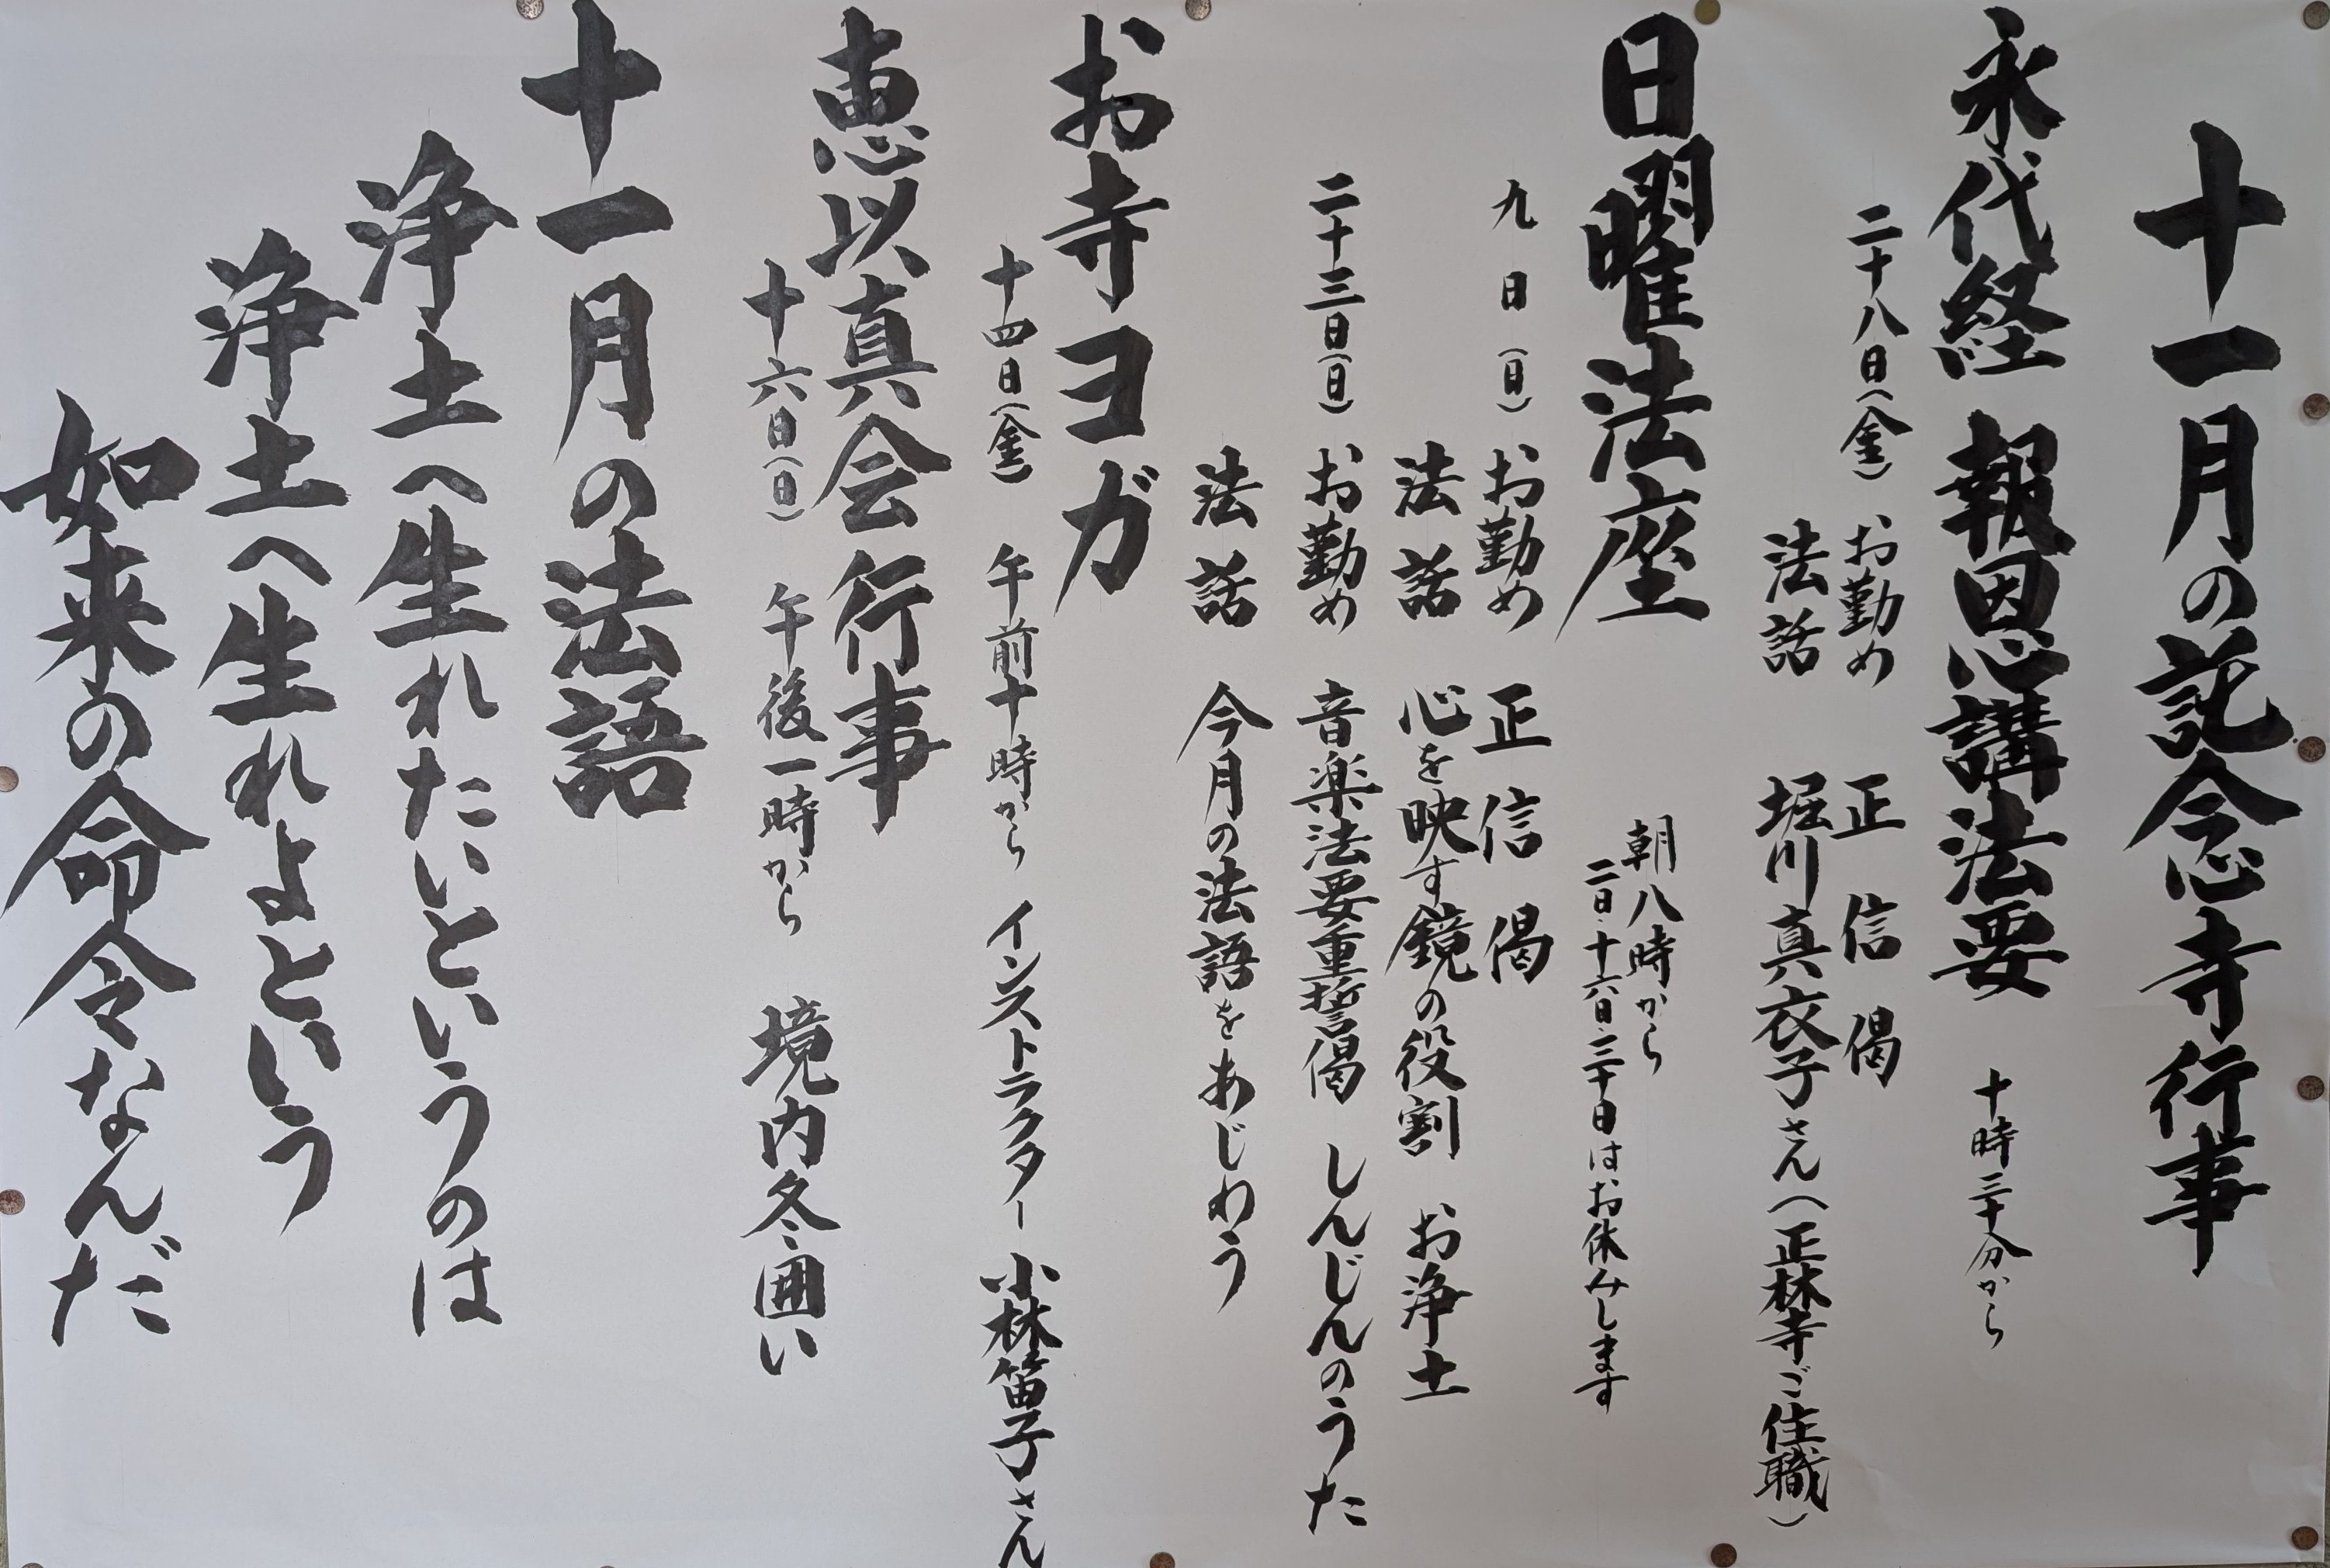 十一月の記念寺行事
永代経 報恩講法要 十時三十分から
二十八日(金) お勤め 正信偈
法話 堀川真衣子さん(正林寺ご住職)
日曜法座 朝八時から
二日・十六日・三十日はお休みします
九日(日) お勤め 正信偈
法話 心を映す鏡の役割 お浄土
二十三日(日) お勤め 音楽法要重誓偈 しんじんのうた
法話 今月の法語をあじわう
お寺ヨガ
十四日(金) 午前十時から インストラクター 小林笛子さん
恵以真会行事
十六日(日) 午後一時から 境内冬囲い
十一月の法語
浄土へ生れたいというのは
浄土へ生れよという
如来の命令なんだ